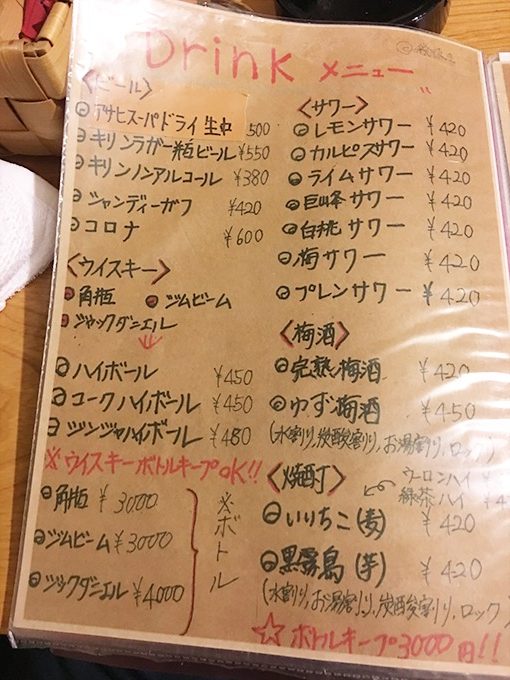 Drink メニュー
〈ビール〉
アサヒスーパドライ 生中 500
キリンラガー瓶ビール ¥550
キリンノンアルコール ¥380
シャンディーガフ ¥420
コロナ ¥600
〈ウイスキー〉
角瓶 ジムビーム
ジャックダニエル
ハイボール ¥450
コークハイボール ¥450
ジンジャハイボール ¥480
※ウイスキーボトルキープOK!!
角瓶 ¥3000
ジムビーム ¥3000
ジャックダニエル ¥4000
※ボトル
〈サワー〉
レモンサワー ¥420
カルピスサワー ¥420
ライムサワー ¥420
巨峰サワー ¥420
白桃サワー ¥420
梅サワー ¥420
プレンサワー ¥420
〈梅酒〉
完熟梅酒 ¥420
ゆず梅酒 ¥450
(水割り,炭酸割り,お湯割り,ロック)
〈焼酎〉
ウーロンハイ ¥
緑茶ハイ ¥4
いいちこ(麦) ¥420
黒霧島(芋) ¥420
(水割り,お湯割り,炭酸割り,ロック)
☆ボトルキープ3000円!!